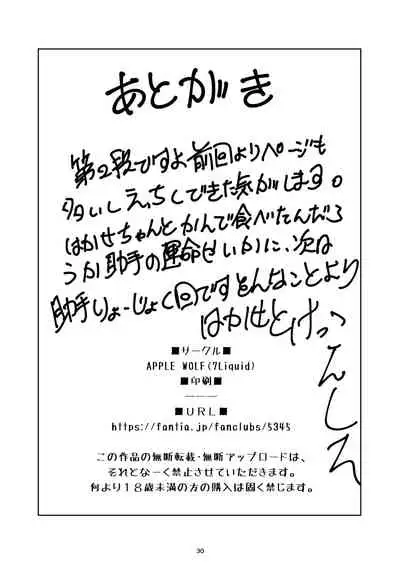 あとがき
第2段ですよ前回よりページも
多いしえっちくできた気がします。
はかせちゃんとかんで食べたんだろ
うか助手の運命はいかに、次は
助手りょーじょく回ですそんなことより
はかせとけっこんしろ
■サークル■
APPLE WOLF(7Liquid)
■印刷■
ーーー
■URL■
https://fantia.jp/fanclubs/5345
この作品の無断転載・無断アップロードは、
それとなーく禁止させていただきます。
何より18歳未満の方の購入は固く禁じます。
30